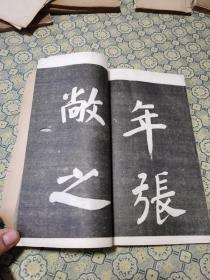 年張
敞之